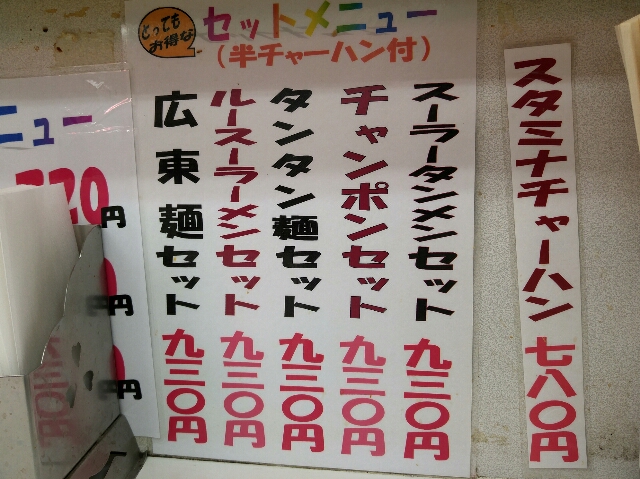 とっても
お得な
セットメニュー
(半チャーハン付)
スーラータンメンセット 九三〇円
チャンポンセット 九三〇円
タンタン麺セット 九三〇円
ルースーラーメンセット 九三〇円
広東麺セット 九三〇円
スタミナチャーハン 七八〇円
ニュー
720円
円
円